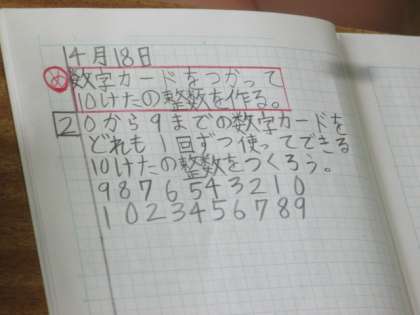 4月18日
め 数字カードをつかって
10けたの整数を作る。
2 0から9までの数字カードを
どれも1回ずつ使ってできる
10けたの整数をつくろう。
9876543210
1023456789